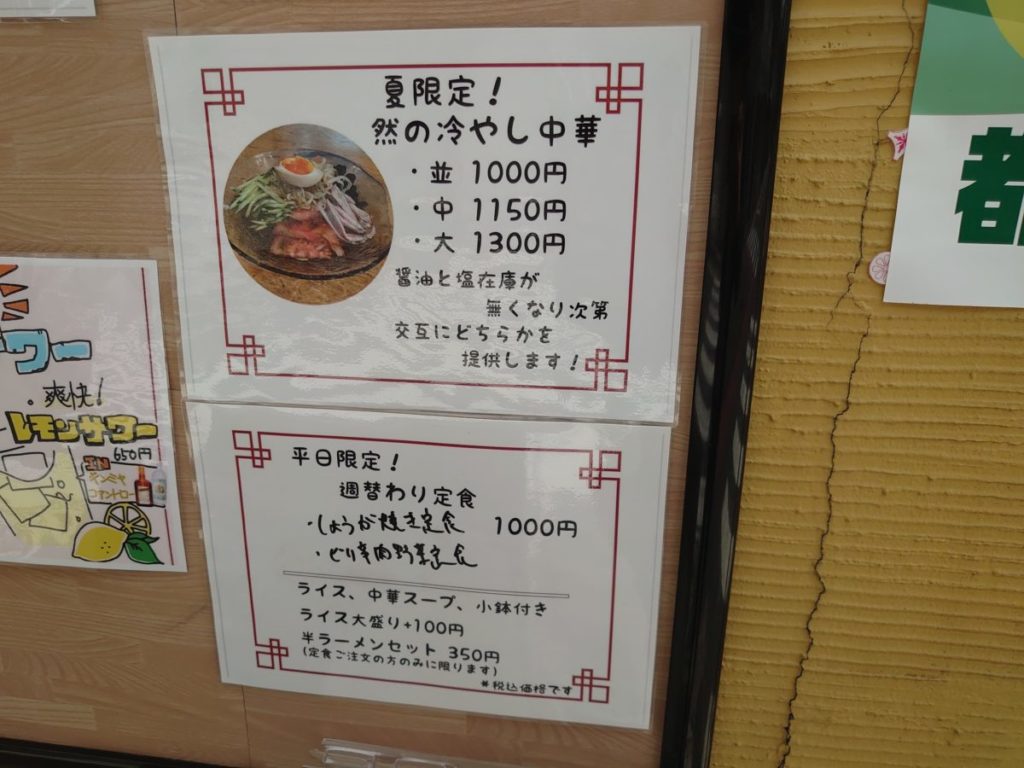 夏限定！
然の冷やし中華
・並 1000円
・中 1150円
・大 1300円
醤油と塩在庫が
無くなり次第
交互にどちらかを
提供します！
平日限定！
週替わり定食
・しょうが焼き定食 1000円
・ピリ辛肉野菜定食
ライス、中華スープ、小鉢付き
ライス大盛り+100円
半ラーメンセット 350円
(定食ご注文の方のみに限ります)
*税込価格です
ワー
爽快！
レモンサワー
650円
IN
キンミヤ
コアントロー
都